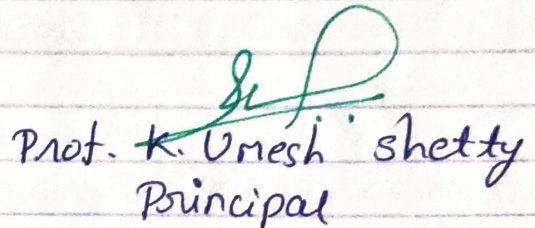 Prof. K. Umesh shetty
Principal